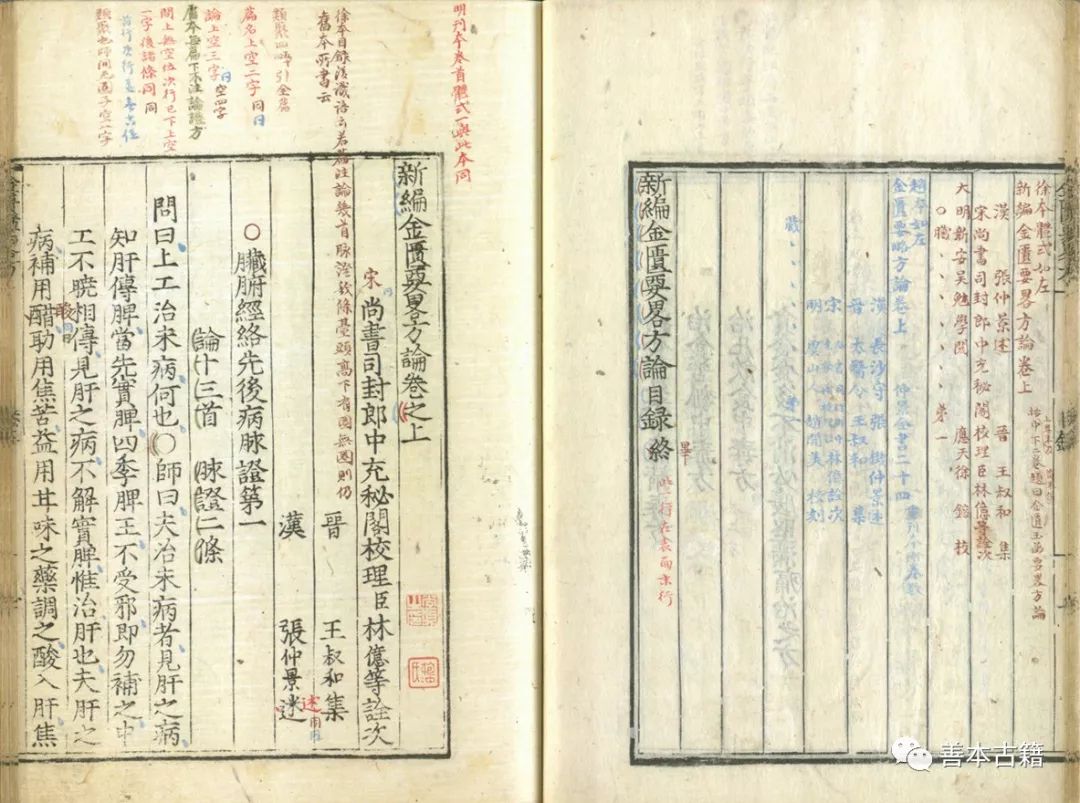 徐本體式如左
新編金匱要畧方論卷上
漢 張仲景述 晉 王叔和 集
宋尚書司封郎中充秘閣校理臣林億等詮次
大明新安吳勉學閱 應天徐鎔校
○臓、、、、、、第一
趙本如左
金匱要略方論卷上 仲景全書二十四
漢 長沙守 張機仲景述
晉 太醫令 王叔和 集
明 虞山人 趙開美 校刻
新編金匱要畧方論目録終
畢
此一行在表面末行
明刊本卷首體式一與此本同
徐本目録後識語云若篇注論幾首脉證敘條臺頭髙下有圈無圈則仍
舊本所書云
篇名上空二字 同
論上空三字 空四字
問上無空位次行已下上空
一字後諸條同 同
新編金匱要畧方論卷之上
宋 尚書司封郎中充秘閣校理臣林億等詮次
晉 王叔和集
漢 張仲景述
○臟腑經絡先後病脉證第一
論十三首 脉證二條
問曰上工治未病何也○師曰夫治未病者見肝之病
知肝傳脾當先實脾四季脾王不受邪即勿補之中
工不曉相傳見肝之病不解實脾惟治肝也夫肝之
病補用醋助用焦苦益用甘味之藥調之酸入肝焦
善本古籍